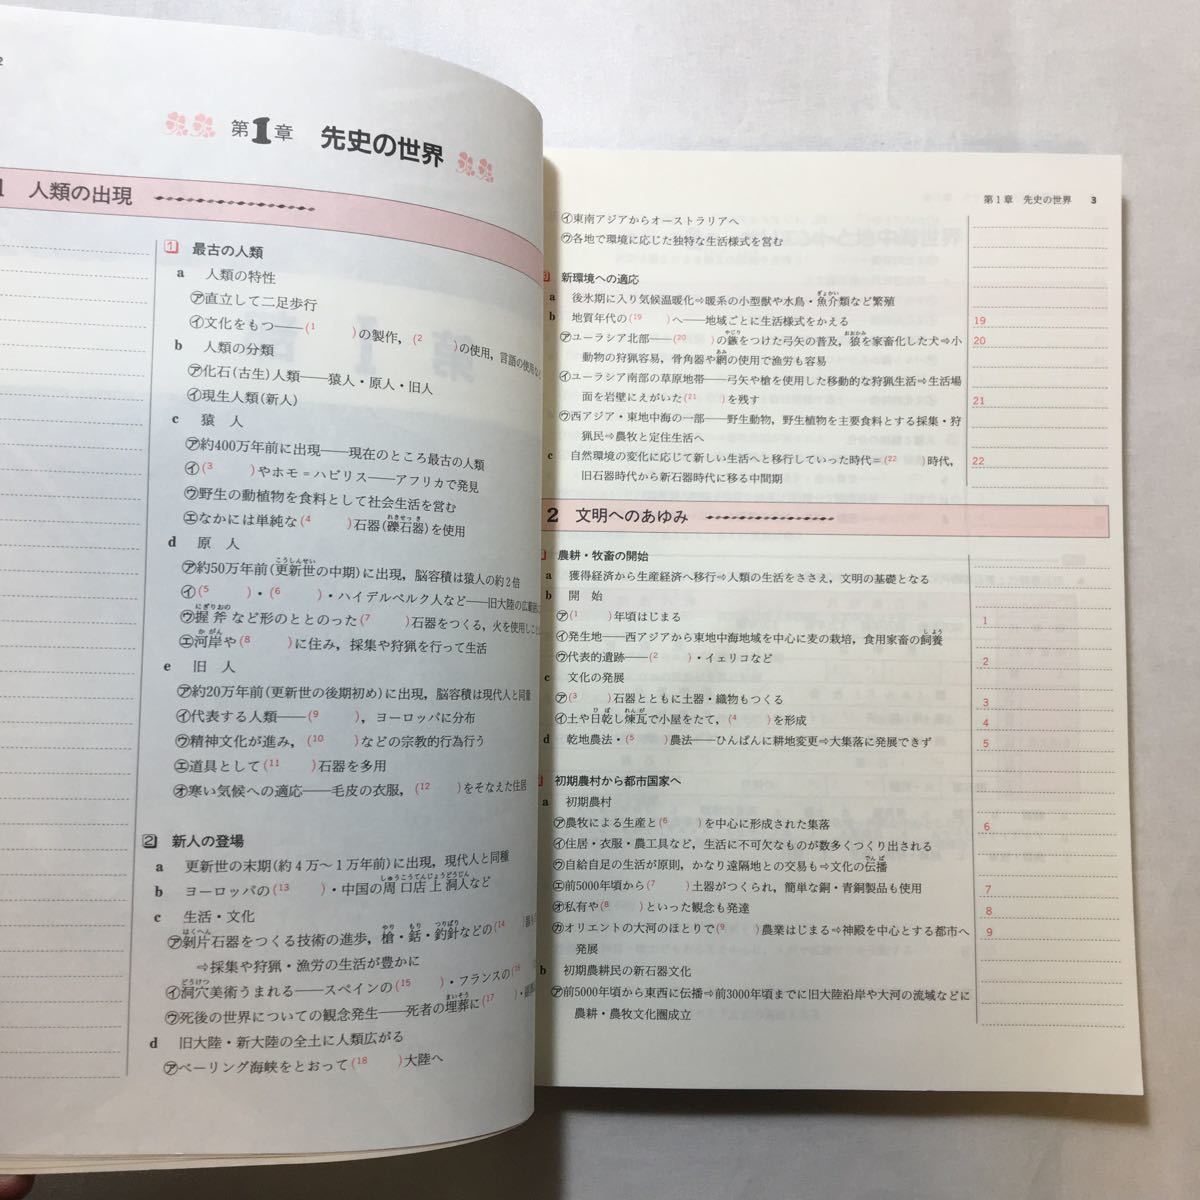 2
第1章 先史の世界
1 人類の出現
1 最古の人類
a 人類の特性
㋐直立して二足歩行
㋑文化をもつ――(1 )の製作,(2 )の使用,言語の使用な
b 人類の分類
㋐化石(古生)人類――猿人・原人・旧人
㋑現生人類(新人)
c 猿人
㋐約400万年前に出現――現在のところ最古の人類
㋑(3 )やホモ=ハビリス――アフリカで発見
㋒野生の動植物を食料として社会生活を営む
㋓なかには単純な(4 )石器(礫石器)を使用
れきせっき
d 原人
㋐約50万年前(更新世の中期)に出現,脳容積は猿人の約2倍
こうしんせい
㋑(5 )・(6 )・ハイデルベルク人など――旧大陸の広範囲
㋒握斧など形のととのった(7 )石器をつくる,火を使用し
にぎりおの
㋓河岸や(8 )に住み,採集や狩猟を行って生活
かがん
e 旧人
㋐約20万年前(更新世の後期初め)に出現,脳容積は現代人と同量
㋑代表する人類――(9 ),ヨーロッパに分布
㋒精神文化が進み,(10 )などの宗教的行為行う
㋓道具として(11 )石器を多用
㋔寒い気候への適応――毛皮の衣服,(12 )をそなえた住居
2 新人の登場
a 更新世の末期(約4万~1万年前)に出現,現代人と同種
b ヨーロッパの(13 )・中国の周口店上洞人など
しゅうこうてんじょうどうじん
c 生活・文化
㋐剝片石器をつくる技術の進歩,槍・銛・釣針などの(14
はくへん やり もり つりばり
⇨採集や狩猟・漁労の生活が豊かに
㋑洞穴美術うまれる――スペインの(15 )・フランスの(16
どうけつ
㋒死後の世界についての観念発生――死者の埋葬に(17 )・
まいそう
d 旧大陸・新大陸の全土に人類広がる
㋐ベーリング海峡をとおって(18 )大陸へ
第1章 先史の世界 3
㋑東南アジアからオーストラリアへ
㋒各地で環境に応じた独特な生活様式を営む
新環境への適応
a 後氷期に入り気候温暖化⇨暖系の小型獣や水鳥・魚介類など繁殖
ぎょかい
b 地質年代の(19 )へ――地域ごとに生活様式をかえる
19
㋐ユーラシア北部――(20 )の鏃をつけた弓矢の普及,狼を家畜化した犬⇨小
やじり おおかみ
20
動物の狩猟容易,骨角器や網の使用で漁労も容易
あみ
㋑ユーラシア南部の草原地帯――弓矢や槍を使用した移動的な狩猟生活⇨生活場
面を岩壁にえがいた(21 )を残す
21
㋒西アジア・東地中海の一部――野生動物,野生植物を主要食料とする採集・狩
猟民⇨農牧と定住生活へ
c 自然環境の変化に応じて新しい生活へと移行していった時代=(22 )時代,
22
旧石器時代から新石器時代に移る中間期
2 文明へのあゆみ
農耕・牧畜の開始
a 獲得経済から生産経済へ移行⇨人類の生活をささえ,文明の基礎となる
b 開始
㋐(1 )年頃はじまる
1
㋑発生地――西アジアから東地中海地域を中心に麦の栽培,食用家畜の飼養
しよう
㋒代表的遺跡――(2 )・イェリコなど
2
c 文化の発展
㋐(3 )石器とともに土器・織物もつくる
3
㋑土や日乾し煉瓦で小屋をたて,(4 )を形成
ひぼ れんが
4
d 乾地農法・(5 )農法――ひんぱんに耕地変更⇨大集落に発展できず
5
初期農村から都市国家へ
a 初期農村
㋐農牧による生産と(6 )を中心に形成された集落
6
㋑住居・衣服・農工具など,生活に不可欠なものが数多くつくり出される
㋒自給自足の生活が原則,かなり遠隔地との交易も⇨文化の伝播
でんぱ
㋓前5000年頃から(7 )土器がつくられ,簡単な銅・青銅製品も使用
7
㋔私有や(8 )といった観念も発達
8
㋕オリエントの大河のほとりで(9 )農業はじまる⇨神殿を中心とする都市へ
9
発展
b 初期農耕民の新石器文化
㋐前5000年頃から東西に伝播⇨前3000年頃までに旧大陸沿岸や大河の流域などに
農耕・農牧文化圏成立